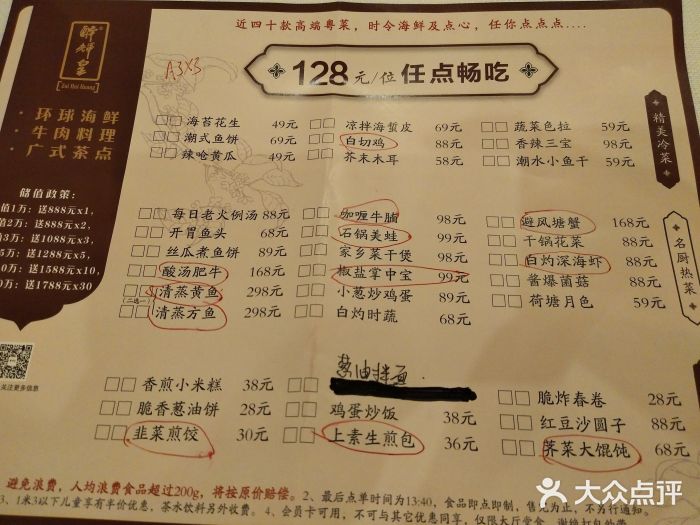 醉辉皇
Zui Hui Huang
· 环球海鲜
· 牛肉料理
· 广式茶点
储值政策:
值1万:送888元x1,
值2万:送888元x2,
值3万:送1088元x3,
5万:送1288元x5,
0万:送1588元x10,
0万:送1788元x30
关注更多信息
近四十款高端粤菜,时令海鲜及点心,任你点点点....
A3x3
128元/位 任点畅吃
精美冷菜
海苔花生 49元
潮式鱼饼 69元
辣呛黄瓜 49元
凉拌海蜇皮 69元
白切鸡 88元
芥末木耳 58元
蔬菜色拉 59元
香辣三宝 98元
潮水小鱼干 59元
名厨热菜
每日老火例汤 88元
开胃鱼头 68元
丝瓜煮鱼饼 89元
酸汤肥牛 168元
清蒸黄鱼 298元
(二选一)
清蒸方鱼 298元
咖喱牛腩 98元
石锅美蛙 99元
家乡菜干煲 98元
椒盐掌中宝 99元
小葱炒鸡蛋 89元
白灼时蔬 68元
避风塘蟹 168元
干锅花菜 88元
白灼深海虾 88元
酱爆菌菇 88元
荷塘月色 59元
香煎小米糕 38元
脆香葱油饼 28元
韭菜煎饺 30元
葱油拌面
鸡蛋炒饭 38元
上素生煎包 36元
脆炸春卷 28元
红豆沙圆子 88元
荠菜大馄饨 68元
避免浪费,人均浪费食品超过200g,将按原价赔偿。2、最后点单时间为13:40,食品即点即制,售完为止,不另行通知。
3、1米3以下儿童享有半价优惠,茶水饮料另外收费。4、会员卡可用,不可与其它优惠同享,仅限大厅堂食,谢绝打包
大众点评